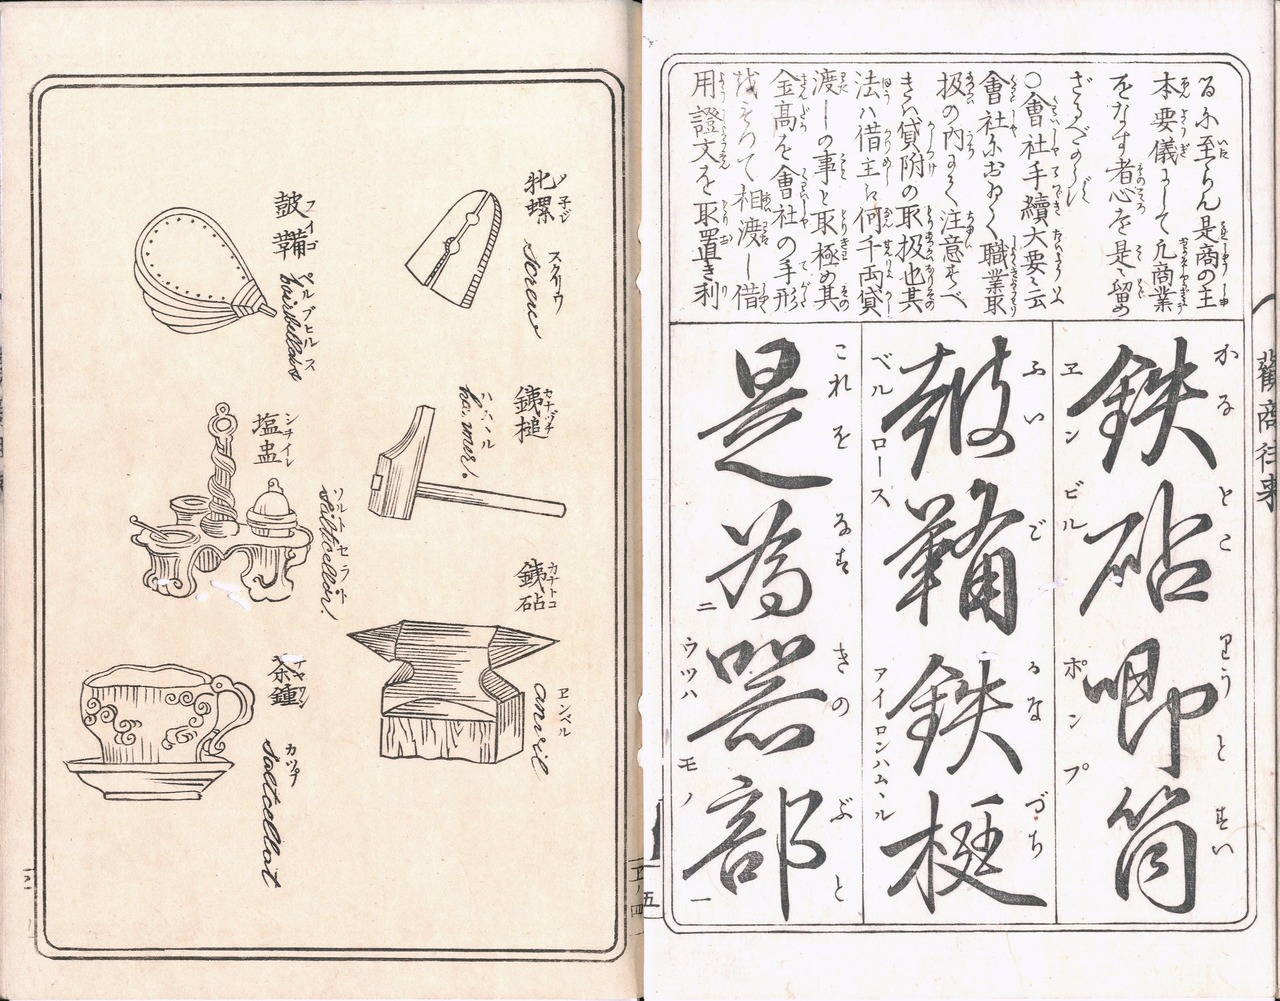 る尓至らん是商の主
本要儀にして凡商業
をなす者心を是に留め
ざるべからず
○會社手續大要之云
會社におゐて職業取
扱の内にて注意すべ
きハ貸附の取扱也其
法ハ借主に何千両貸
渡しの事と取極め其
金高を會社の手形
相渡し借
用證文を取置き利
鉄砧喞筒
かるとこ
りうとすい
ヱンビル
ポンプ
鞁鞴鉄梃
ふいご
かなづち
ベルロース
アイロンハムヽル
是為器部
これをなす
きのぶと
二
ウツハモノ
一
勸商往来
五
牝螺
子ジ
スクリウ
screw
鉄槌
カナヅチ
ハムヽル
hammer.
鉄砧
カナトコ
ヱンベル
anvil
鞁鞴
フイゴ
ベルブヒルス
塩盅
シヲイレ
ソルトセラト
茶鍾
チヤワン
カップ
saltcellat